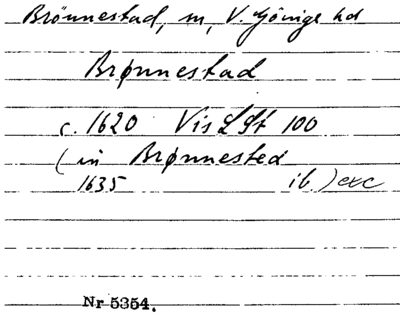 Brönnestad, sn, V. Göinge hd
Brønnestad
c. 1620 Vis LSt 100
(in Brønnested
1635 ib.) exc
Nr 5354.